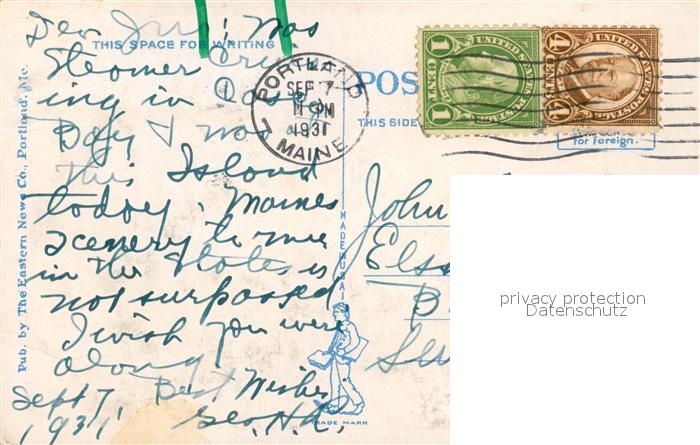 Dear Jno; Was
THIS SPACE FOR WRITING
Steamer Cruis-
ing in Casco
Bay & was at
this Island
today. Maines
scenery to me
in the States is
not surpassed
I wish you were
along
Best Wishes
Sept 7,
1931, Geo. H.
Pub. by The Eastern News Co., Portland, Me.
MADE IN U.S.A.
TRADE MARK
PORTLAND
SEP 7
PM
1931
MAINE
POS
THIS SIDE
1 CENT 1
UNITED STATES POSTAGE
4 CENTS 4
UNITED STATES POSTAGE
for Foreign.
John
Els
B
privacy protection
Datenschutz